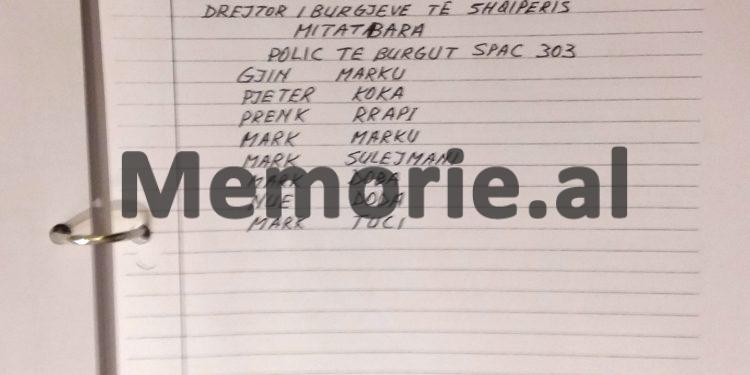 DREJTOR I BURGJEVE TË SHQIPERIS
MITAT BARA
POLIC TE BURGUT SPAC 303
GJIN MARKU
PJETER KOKA
PRENK RRAPI
MARK MARKU
MARK SULEJMANI
MARK DOBA
NUE DODA
MARK TUCI
Memorie.al